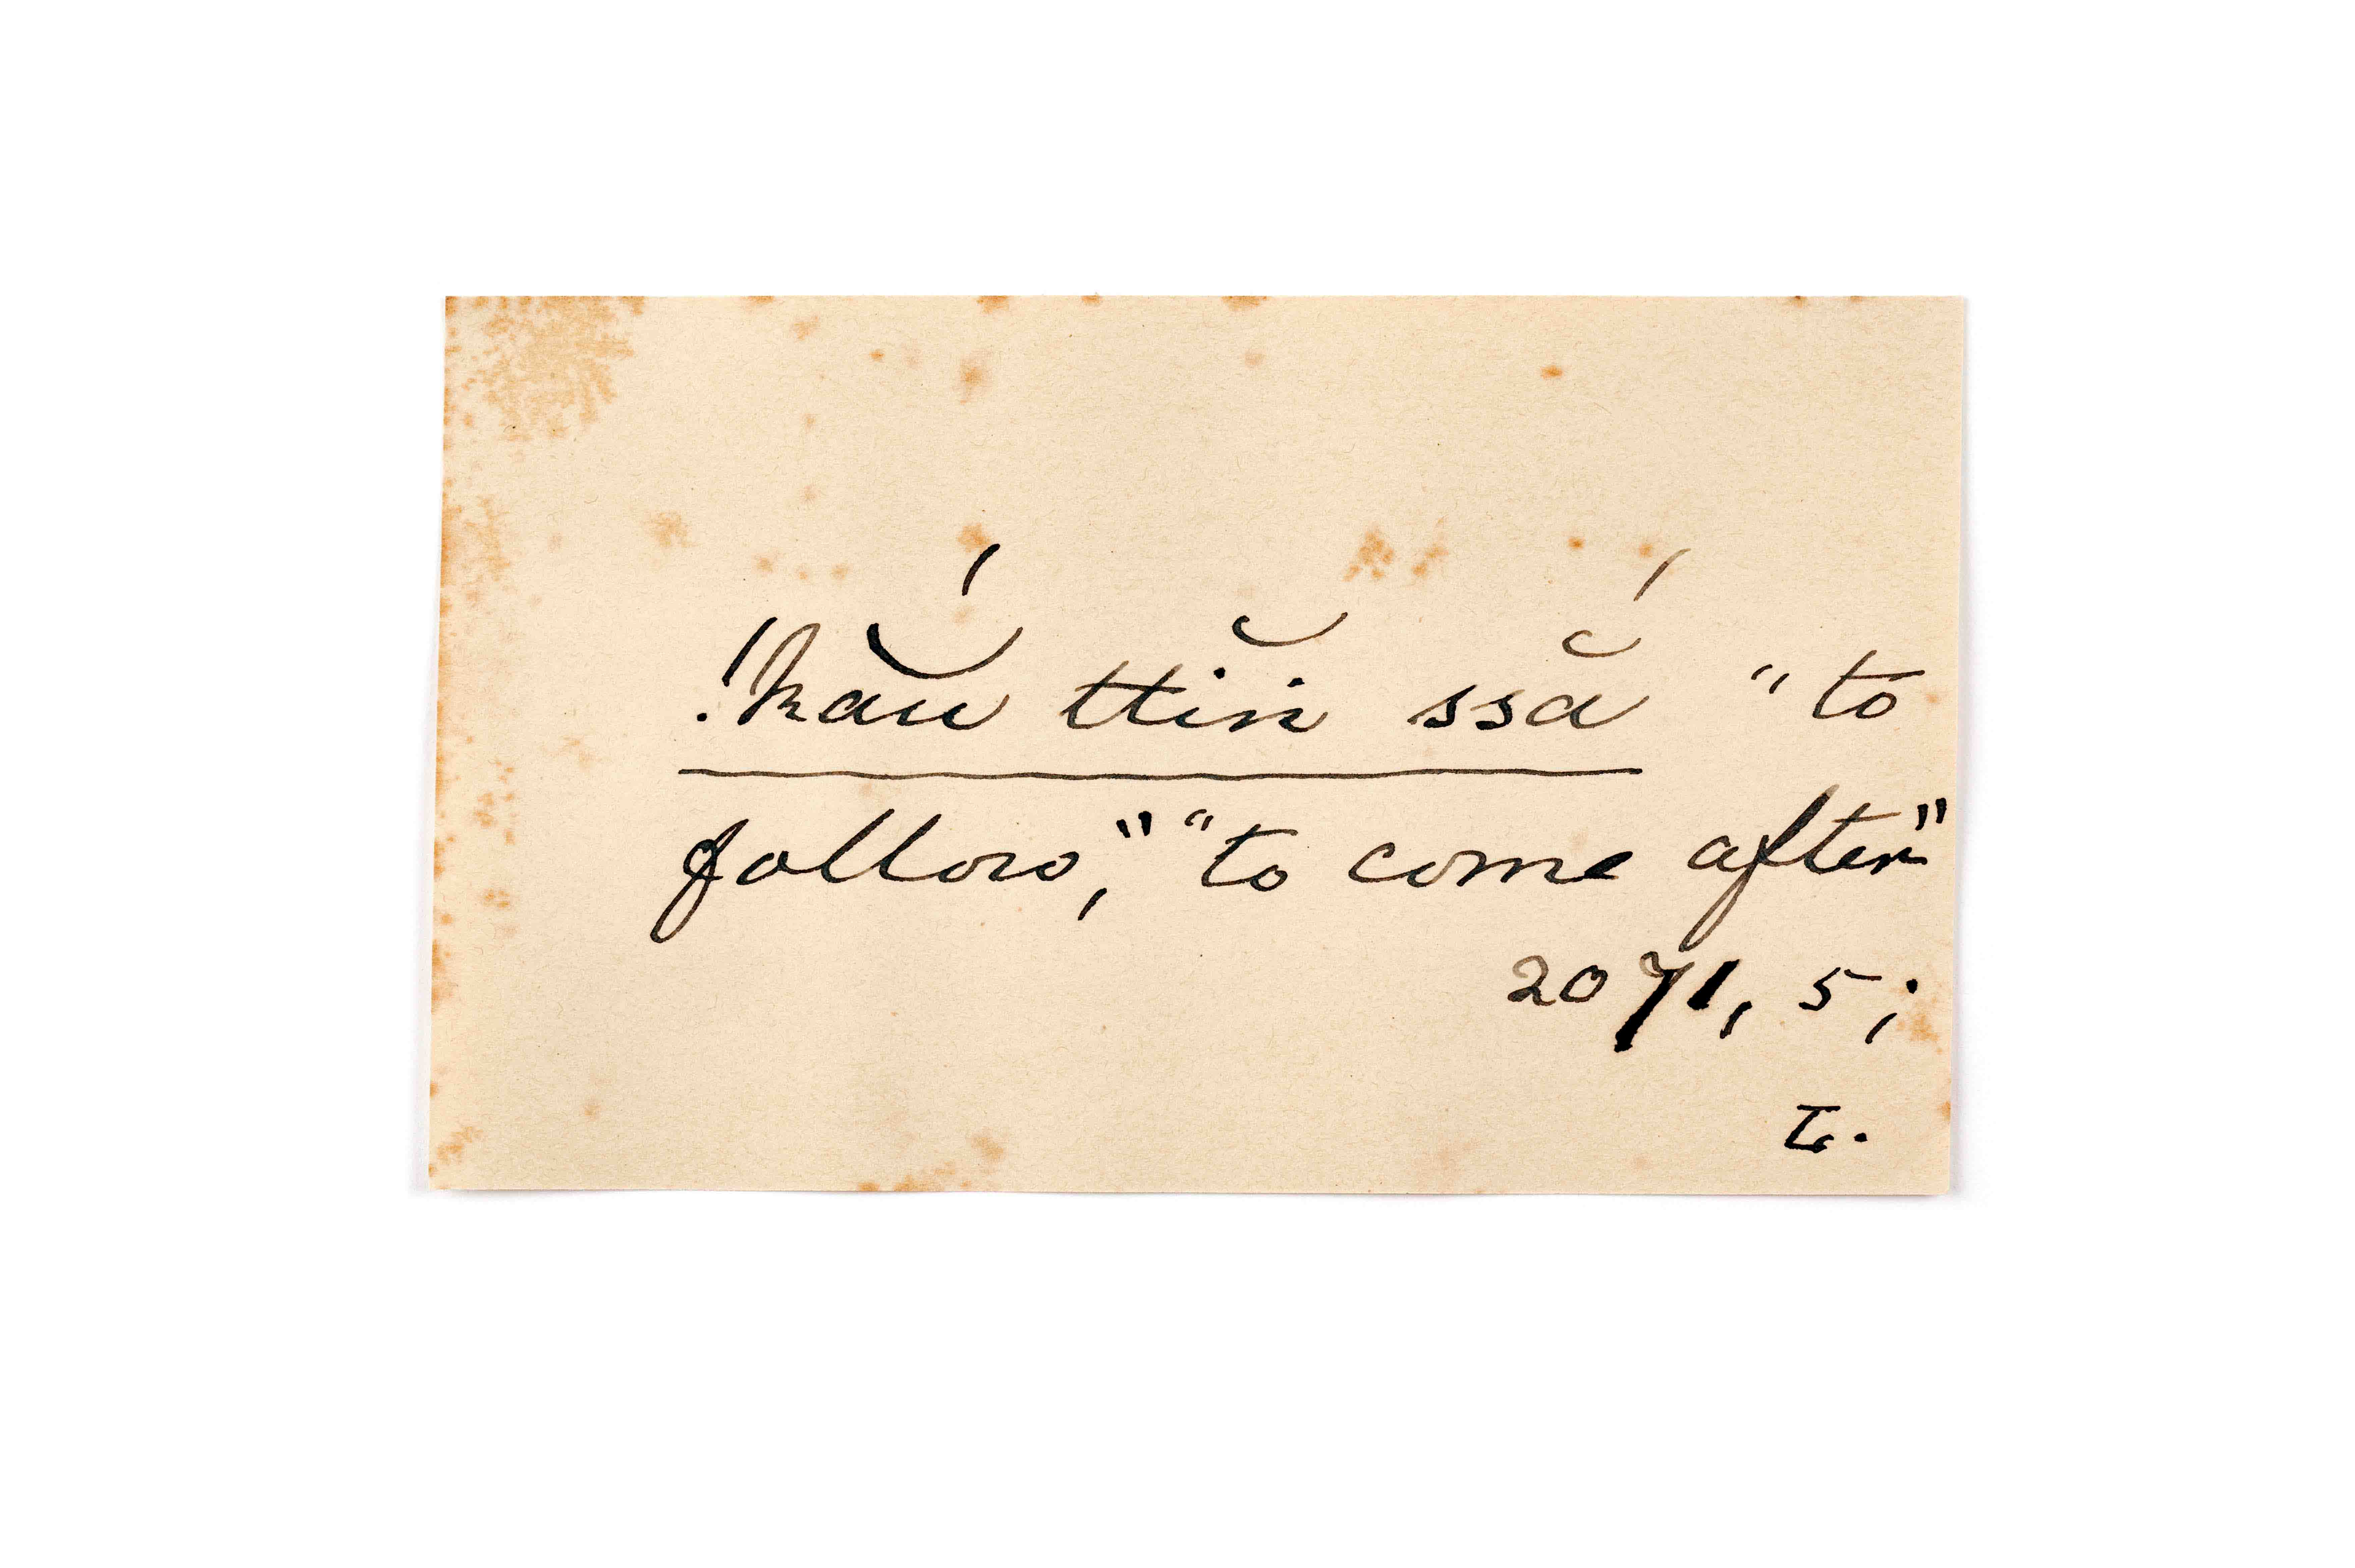 !kăú̯ ttĭṅ ssắ "to
follow," "to come after"
2071, 5;
L.